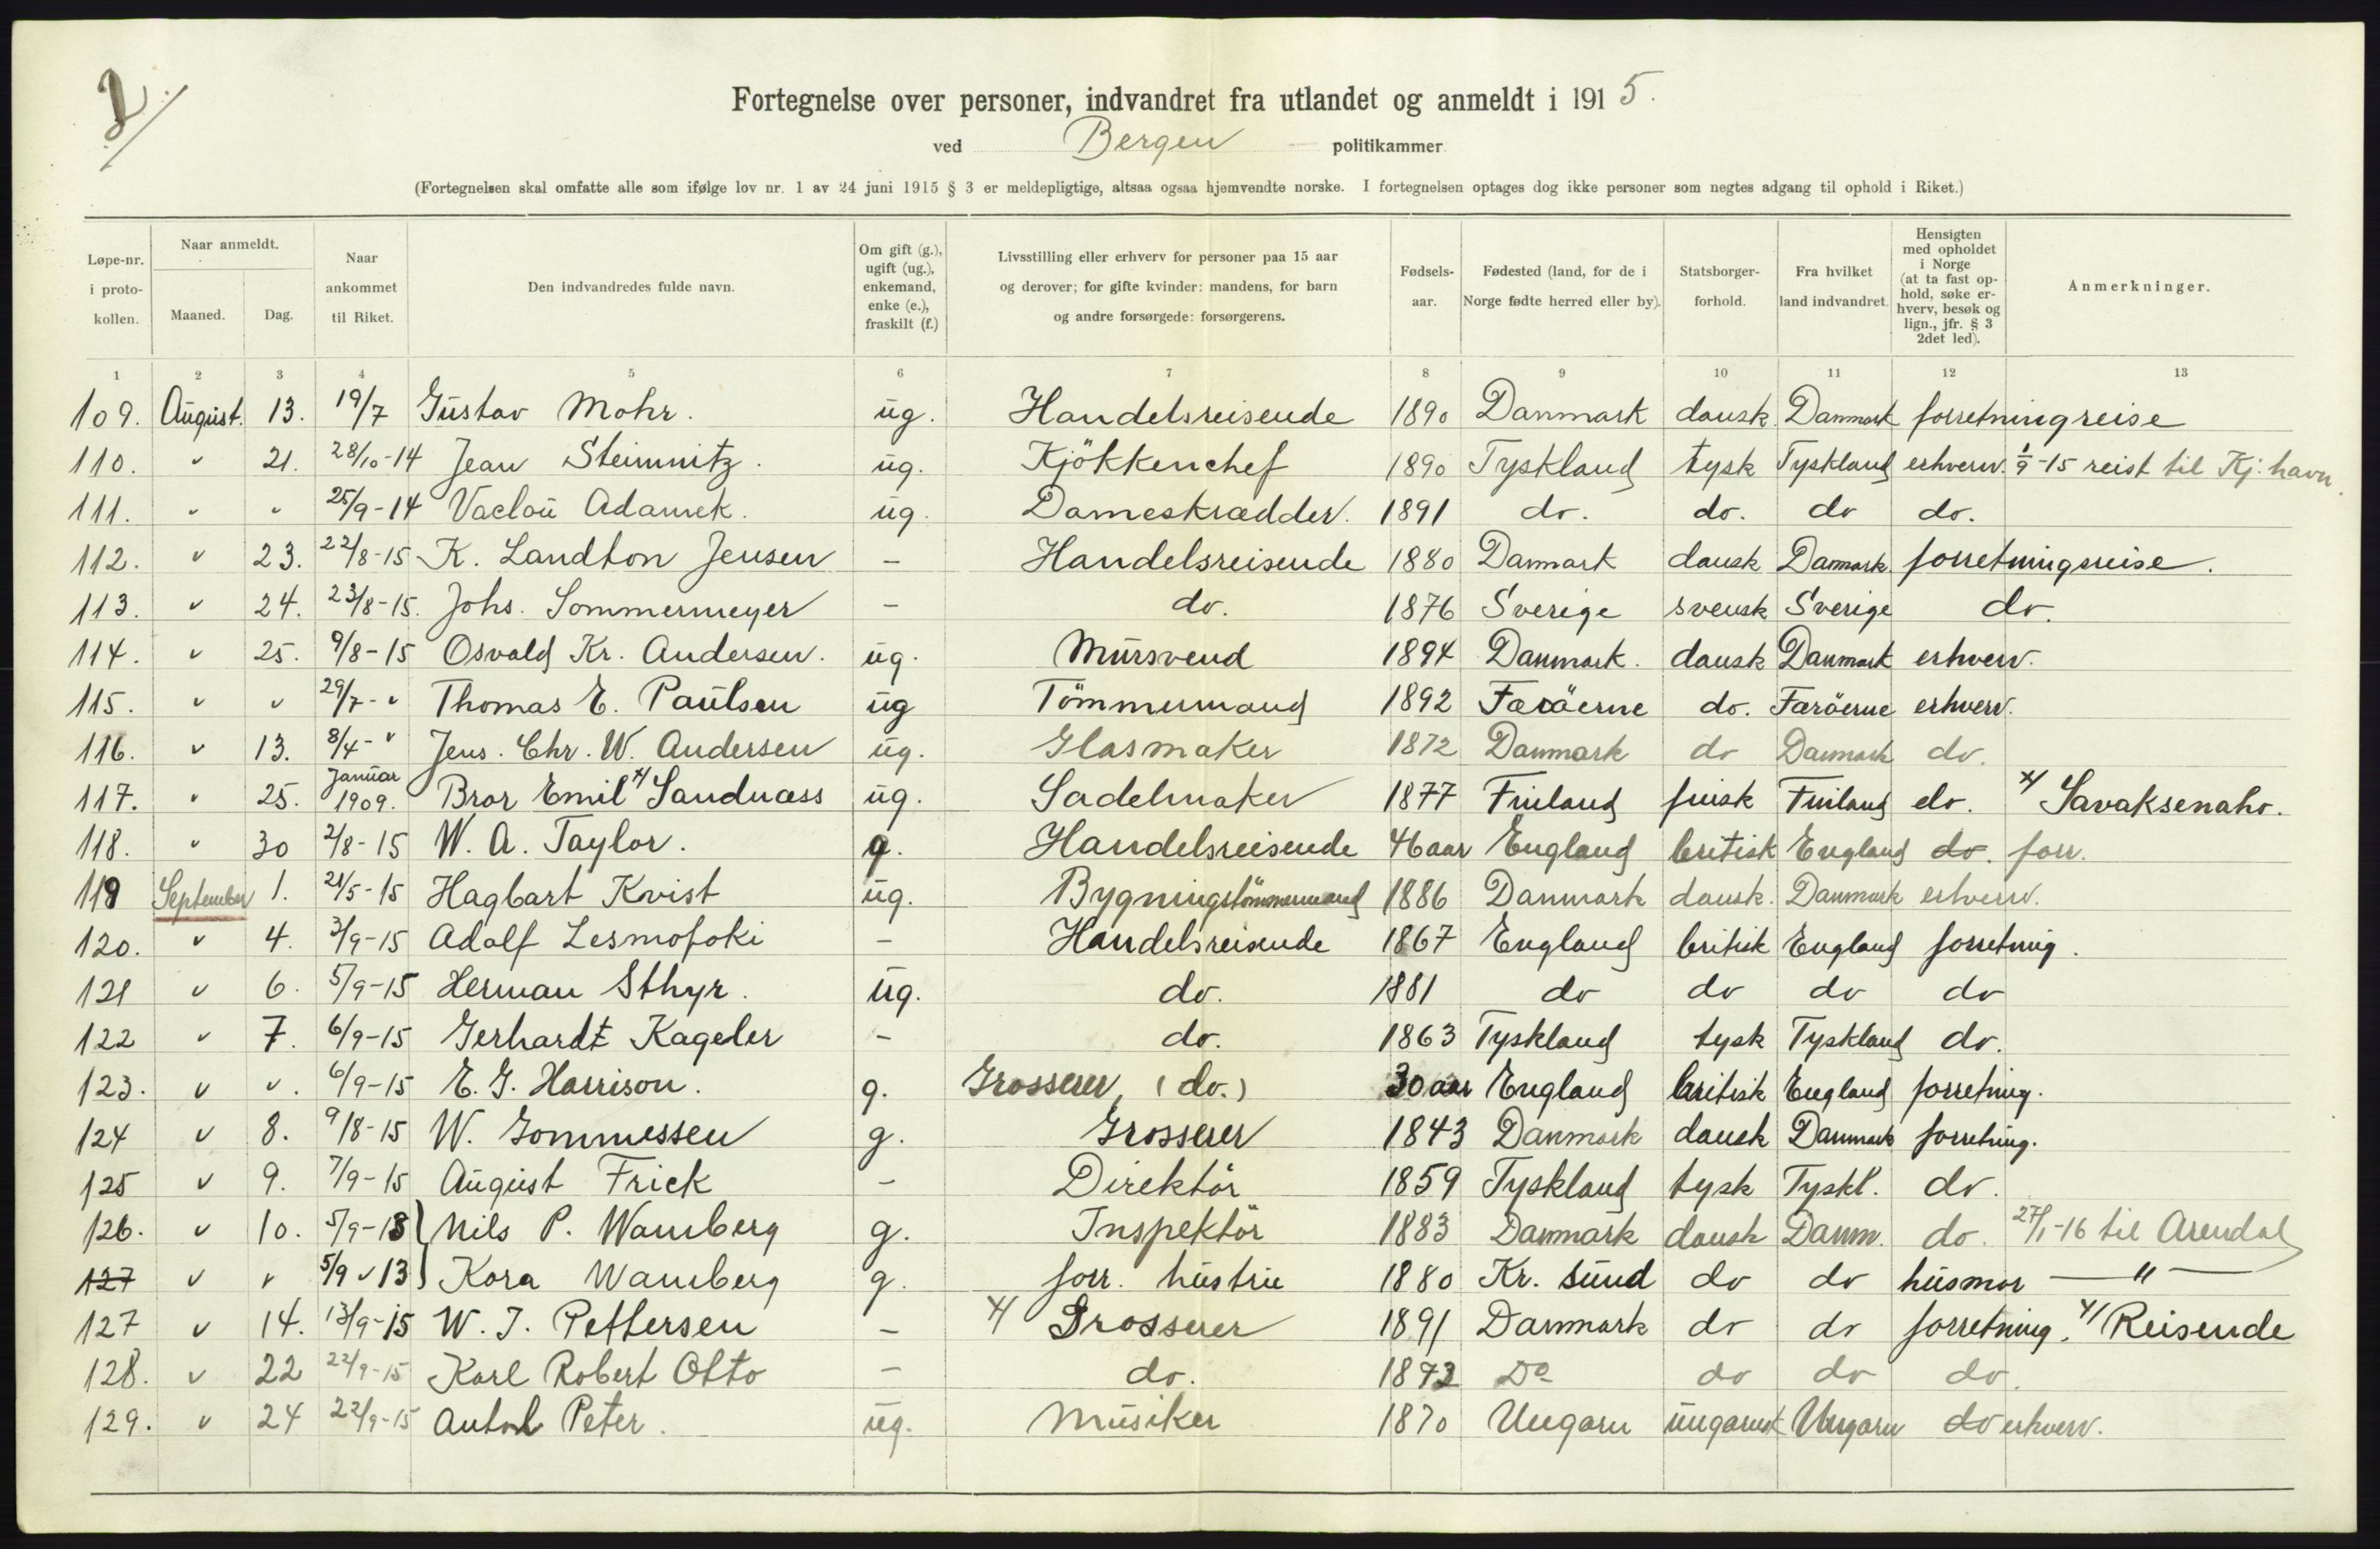 2/.
Fortegnelse over personer, indvandret fra utlandet og anmeldt i 1915.
ved Bergen politikammer
(Fortegnelsen skal omfatte alle som ifølge lov nr. 1 av 24 juni 1915 § 3 er meldepligtige, altsaa ogsaa hjemvendte norske. I fortegnelsen optages dog ikke personer som negtes adgang til ophold i Riket.)
Løpe-nr. i proto-kollen. Naar anmeldt. Maaned. Dag. Naar ankommet til Riket. Den indvandredes fulde navn. Om gift (g.), ugift (ug.), enkemand, enke (e.), fraskilt (f.) Livsstilling eller erhverv for personer paa 15 aar og derover; for gifte kvinder: mandens, for barn og andre forsørgede: forsørgerens. Fødsels-aar. Fødested (land, for de i Norge fødte herred eller by). Statsborger-forhold. Fra hvilket land indvandret. Hensigten med opholdet i Norge (at ta fast op-hold, søke er-hverv, besøk og lign., jfr. § 3 2det led). Anmerkninger.
1 2 3 4 5 6 7 8 9 10 11 12 13
109. August. 13. 19/7 Gustav Mohr. ug. Handelsreisende 1890 Danmark dansk Danmark forretningreise
110. " 21. 28/10-14 Jean Steimnitz. ug. Kjökkenchef 1890 Tyskland tysk Tyskland erhverv. 1/9-15 reist til Kj:havn.
111. " " 25/9-14 Vaclaü Adamek. ug. Dameskrædder. 1891 do. do. do do.
112. " 23. 22/8-15 K. Landton Jensen - Handelsreisende 1880 Danmark dansk Danmark forretningsreise.
113. " 24. 23/8-15. Johs. Sommermeyer - do. 1876 Sverige svensk Sverige do.
114. " 25. 9/8-15 Osvald Kr. Andersen. ug. Mursvend 1894 Danmark. dansk Danmark erhverv.
115. " " 29/7-" Thomas E. Paulsen ug Tömmermand 1892 Færöerne do. Færöerne erhverv.
116. " 13. 8/4-" Jens. Chr. W. Andersen ug. Glasmaker 1872 Danmark do Danmark do.
117. " 25. Januar 1909. Bror Emil x/ Sandnæss ug. Sadelmaker 1877 Finland finsk Finland do. x/ Savaksenaho.
118. " 30 2/8-15 W. A. Taylor. g. Handelsreisende 46 aar England britisk England do. forr.
119 September 1. 21/5-15 Hagbart Kvist ug. Bygningstömmermand 1886 Danmark dansk. Danmark erhverv.
120. " 4. 3/9-15 Adolf Lesmofoki - Handelsreisende 1867 England britisk England forretning.
121 " 6. 5/9-15 Herman Sthyr. ug. do. 1881 do do do do
122 " 7. 6/9-15 Gerhardt Kageler - do. 1863 Tyskland tysk Tyskland do.
123. " ". 6/9-15 E. G. Harrison. g. Grosserer, (do.) 30 aar England britisk England forretning.
124 " 8. 9/8-15 W. Gommessen g. Grosserer 1843 Danmark dansk Danmark forretning.
125 " 9. 7/9-15 August Frick - Direktör 1859 Tyskland tysk Tyskl. do.
126. " 10. 5/9-13 Nils P. Wamberg g. Inspektör 1883 Danmark dansk Danm. do. 27/1-16 til Arendal
127 " " 5/9 " 13 Kora Wamberg g. forr. hustru 1880 Kr. sund do do husmor — " —
127 " 14. 13/9-15 W. J. Pettersen - x/ Grosserer 1891 Danmark do do forretning. x/ Reisende
128. " 22 22/9-15 Karl Robert Otto - do. 1872 Do do do do.
129. " 24 22/9-15 Anton Peter. ug. Musiker 1870 Ungarn ungarsk Ungarn do erhverv.